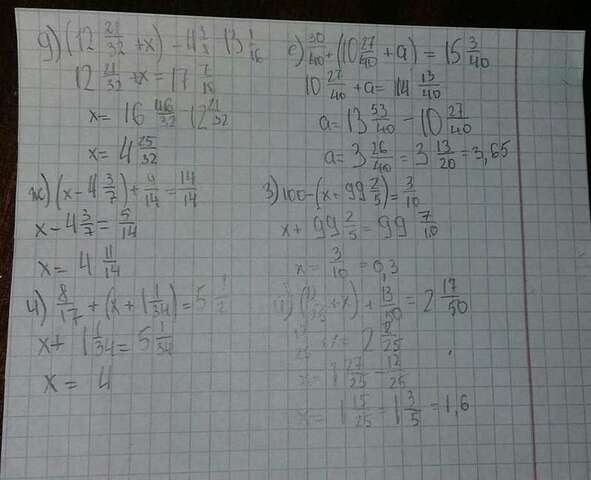 д) (12 21/32 + x) - 4 3/8 = 13 1/16
12 21/32 + x = 17 7/16
x = 16 46/32 - 12 21/32
x = 4 25/32
е) 30/40 + (10 27/40 + a) = 15 3/40
10 27/40 + a = 14 13/40
a = 13 53/40 - 10 27/40
a = 3 26/40 = 3 13/20 = 3,65
ж) (x - 4 3/7) + 9/14 = 14/14
x - 4 3/7 = 5/14
x = 4 11/14
з) 100 - (x + 99 2/5) = 3/10
x + 99 2/5 = 99 7/10
x = 3/10 = 0,3
и) 8/17 + (x + 1 1/34) = 5 1/2
x + 1 1/34 = 5 1/34
x = 4
+ x) + 13/50 = 2 17/50
= 2 2/25
x = 1 27/25 - 12/25
x = 1 15/25 = 1 3/5 = 1,6